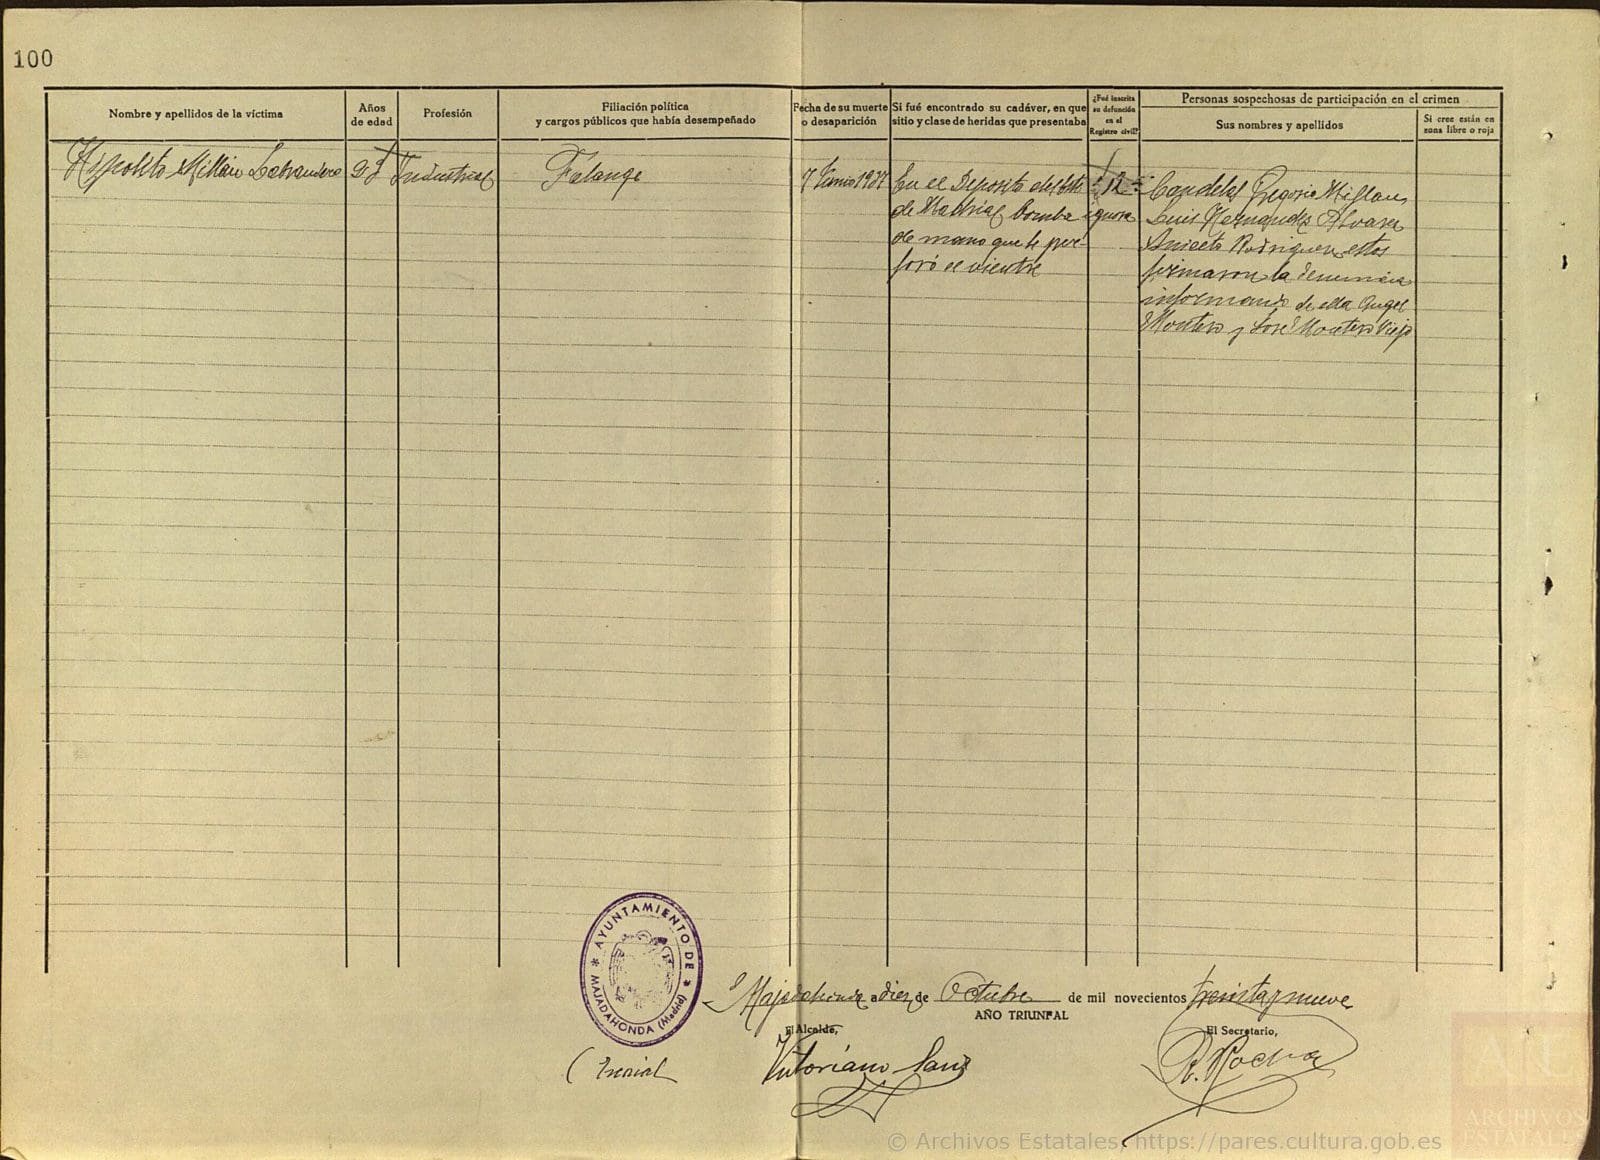 100
Nombre y apellidos de la víctima
Años
de edad
Profesión
Filiación política
y cargos públicos que había desempeñado
Fecha de su muerte
o desaparición
Si fué encontrado su cadáver, en que
sitio y clase de heridas que presentaba
¿Fué inscrita
su defunción
en el
Registro civil?
Personas sospechosas de participación en el crimen
Sus nombres y apellidos
Si cree están en
zona libre o roja
Hipolito Millán Labrandero
Industrial
Falange
7 Junio 1937
En el Deposito del
de Madrid bomba
de mano que le per-
foró el vientre
ignora
Candelas Gregorio Millan,
Luis Hernandez Alvarez
Aniceto Rodriguez, estos
firmaron la denuncia
informando de ella Angel
Montero y José Montero Viejo
AYUNTAMIENTO DE
MAJADAHONDA (Madrid)
Majadahonda a diez de Octubre de mil novecientos treinta y nueve
AÑO TRIUNFAL
El Alcalde,
El Secretario,
Vitoriano Sanz
R. Rocha
© Archivos Estatales, https://pares.cultura.gob.es
ARCHIVOS
ESTATALES